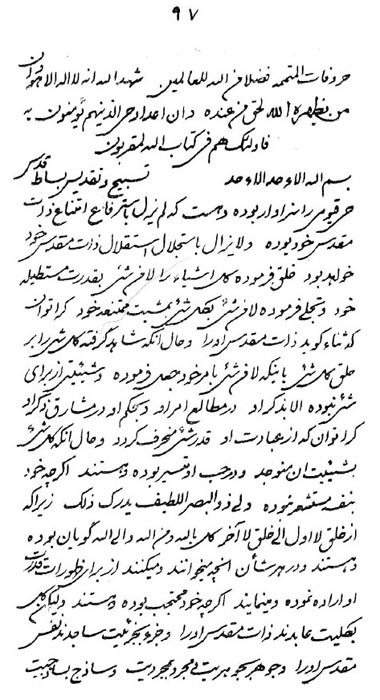 ۹۷
حروفات المتممه فضلا من الله للعالمین شهد الله انه لا اله الا هو و ان
من یظهره الله لحق من عنده و ان اعداد حی الذینهم یؤمنون به
فاولئک هم فی کتاب الله لمقربون
بسم الله الاوحد الاوحد تسبیح و تقدیس بساط قدس
حی قیومی را سزاوار بوده و هست که لم یزل باسترفاع امتناع ذات
مقدس خود بوده و لا یزال باستجلال استقلال ذات مقدس خود
خواهد بود خلق فرموده کل اشیاء را لا من شئ بقدرت مستطیله
خود و تجلی فرموده لا من شئ بکل شئ بمشیت ممتنعه خود کرا توان
که ثناء گوید ذات مقدس او را و حال آنکه شاهد گرفته کل شئ را بر
خلق کل شئ باینکه لا من شئ بامر خود جعل فرموده و شیئیتی از برای
شئ نبوده الا بذکر او در مطالع امر او و بحکم او در مشارق ذکر او
کرا توان که از عبادت او قدر شئ منحرف گردد و حال آنکه کل شئ
بشیئیت ان متوجد و در حب او متسیر بوده و هستند اگرچه خود
بنفسه مستشعر نبوده ولی ذو البصر اللطیف یدرک ذلک زیرا که
از خلق لا اول الی خلق لا آخر کل بالله و من الله و الی الله گویان بوده
و هستند و در هر شأن آنچه میخوانند و میکنند از برای ظهورات قدرت
او اراده نموده و مینمایند اگرچه خود محتجب بوده و هستند و لیکن کل
بکلیت عابدند ذات مقدس او را و جزء بجزئیت ساجدند نفس
مقدس او را و جوهر بجوهریت و مجرد بمجردیت و ساذج بساذجیت